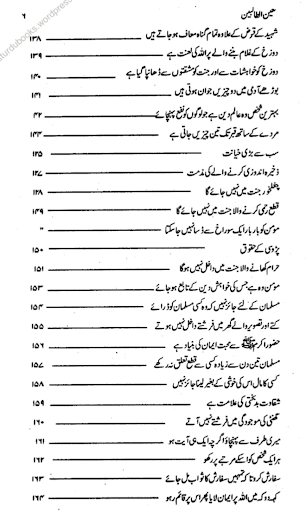 معین الطالبین ۶
شہید کے قرض کے علاوہ تمام گناہ معاف ہو جاتے ہیں ۱۳۸
دوزخ کے غلام بننے والے پر اللہ کی لعنت ہے ۱۳۹
دوزخ کو خواہشات سے اور جنت کو مشقتوں سے ڈھانپا گیا ہے ۱۴۰
بوڑھے آدمی میں دو چیزیں جوان ہوتی ہیں ۱۴۱
بہترین شخص وہ عالم دین ہے جو لوگوں کو نفع پہنچائے ۱۴۲
مردے کے ساتھ قبر تک تین چیزیں جاتی ہے ۱۴۳
سب سے بڑی خیانت ۱۴۵
ذخیرہ اندوزی کرنے والے کی مذمت ۱۴۷
چغلخور جنت میں نہیں جائے گا ۱۴۸
قطع رحمی کرنے والا جنت میں نہیں جائے گا ۱۴۹
مؤمن کو بار بار ایک سوراخ سے ڈسا نہیں جا سکتا "
پڑوسی کے حقوق ۱۵۰
حرام کھانے والا جنت میں داخل نہیں ہوگا ۱۵۱
مؤمن وہ ہے جس کی خواہش دین کے تابع ہو جائے ۱۵۳
مسلمان کے لئے جائز نہیں کہ وہ کسی مسلمان کو ڈرائے ۱۵۴
کتے اور تصویر والے گھر میں فرشتے داخل نہیں ہوتے ۱۵۵
حضور اکرم ﷺ سے محبت ایمان کی بنیاد ہے ۱۵۶
مسلمان تین دن سے زیادہ کسی سے قطع تعلق نہ رکھے ۱۵۷
کسی کا مال اس کی خوشی کے بغیر لینا جائز نہیں ۱۵۸
شقاوت بدبختی کی علامت ہے ۱۵۹
گھنٹی کی موجودگی میں فرشتے نہیں آتے ۱۶۰
میری طرف سے پہنچاؤ اگرچہ ایک ہی آیت ہو ۱۶۱
ہر ایک شخص کو اسکے مرتبے پر رکھو ۱۶۲
سفارش کرو تا کہ تمہیں سفارش کا ثواب مل جائے ۱۶۳
کہدو کہ میں اللہ پر ایمان لایا پھر اس پر قائم رہو ۱۶۴